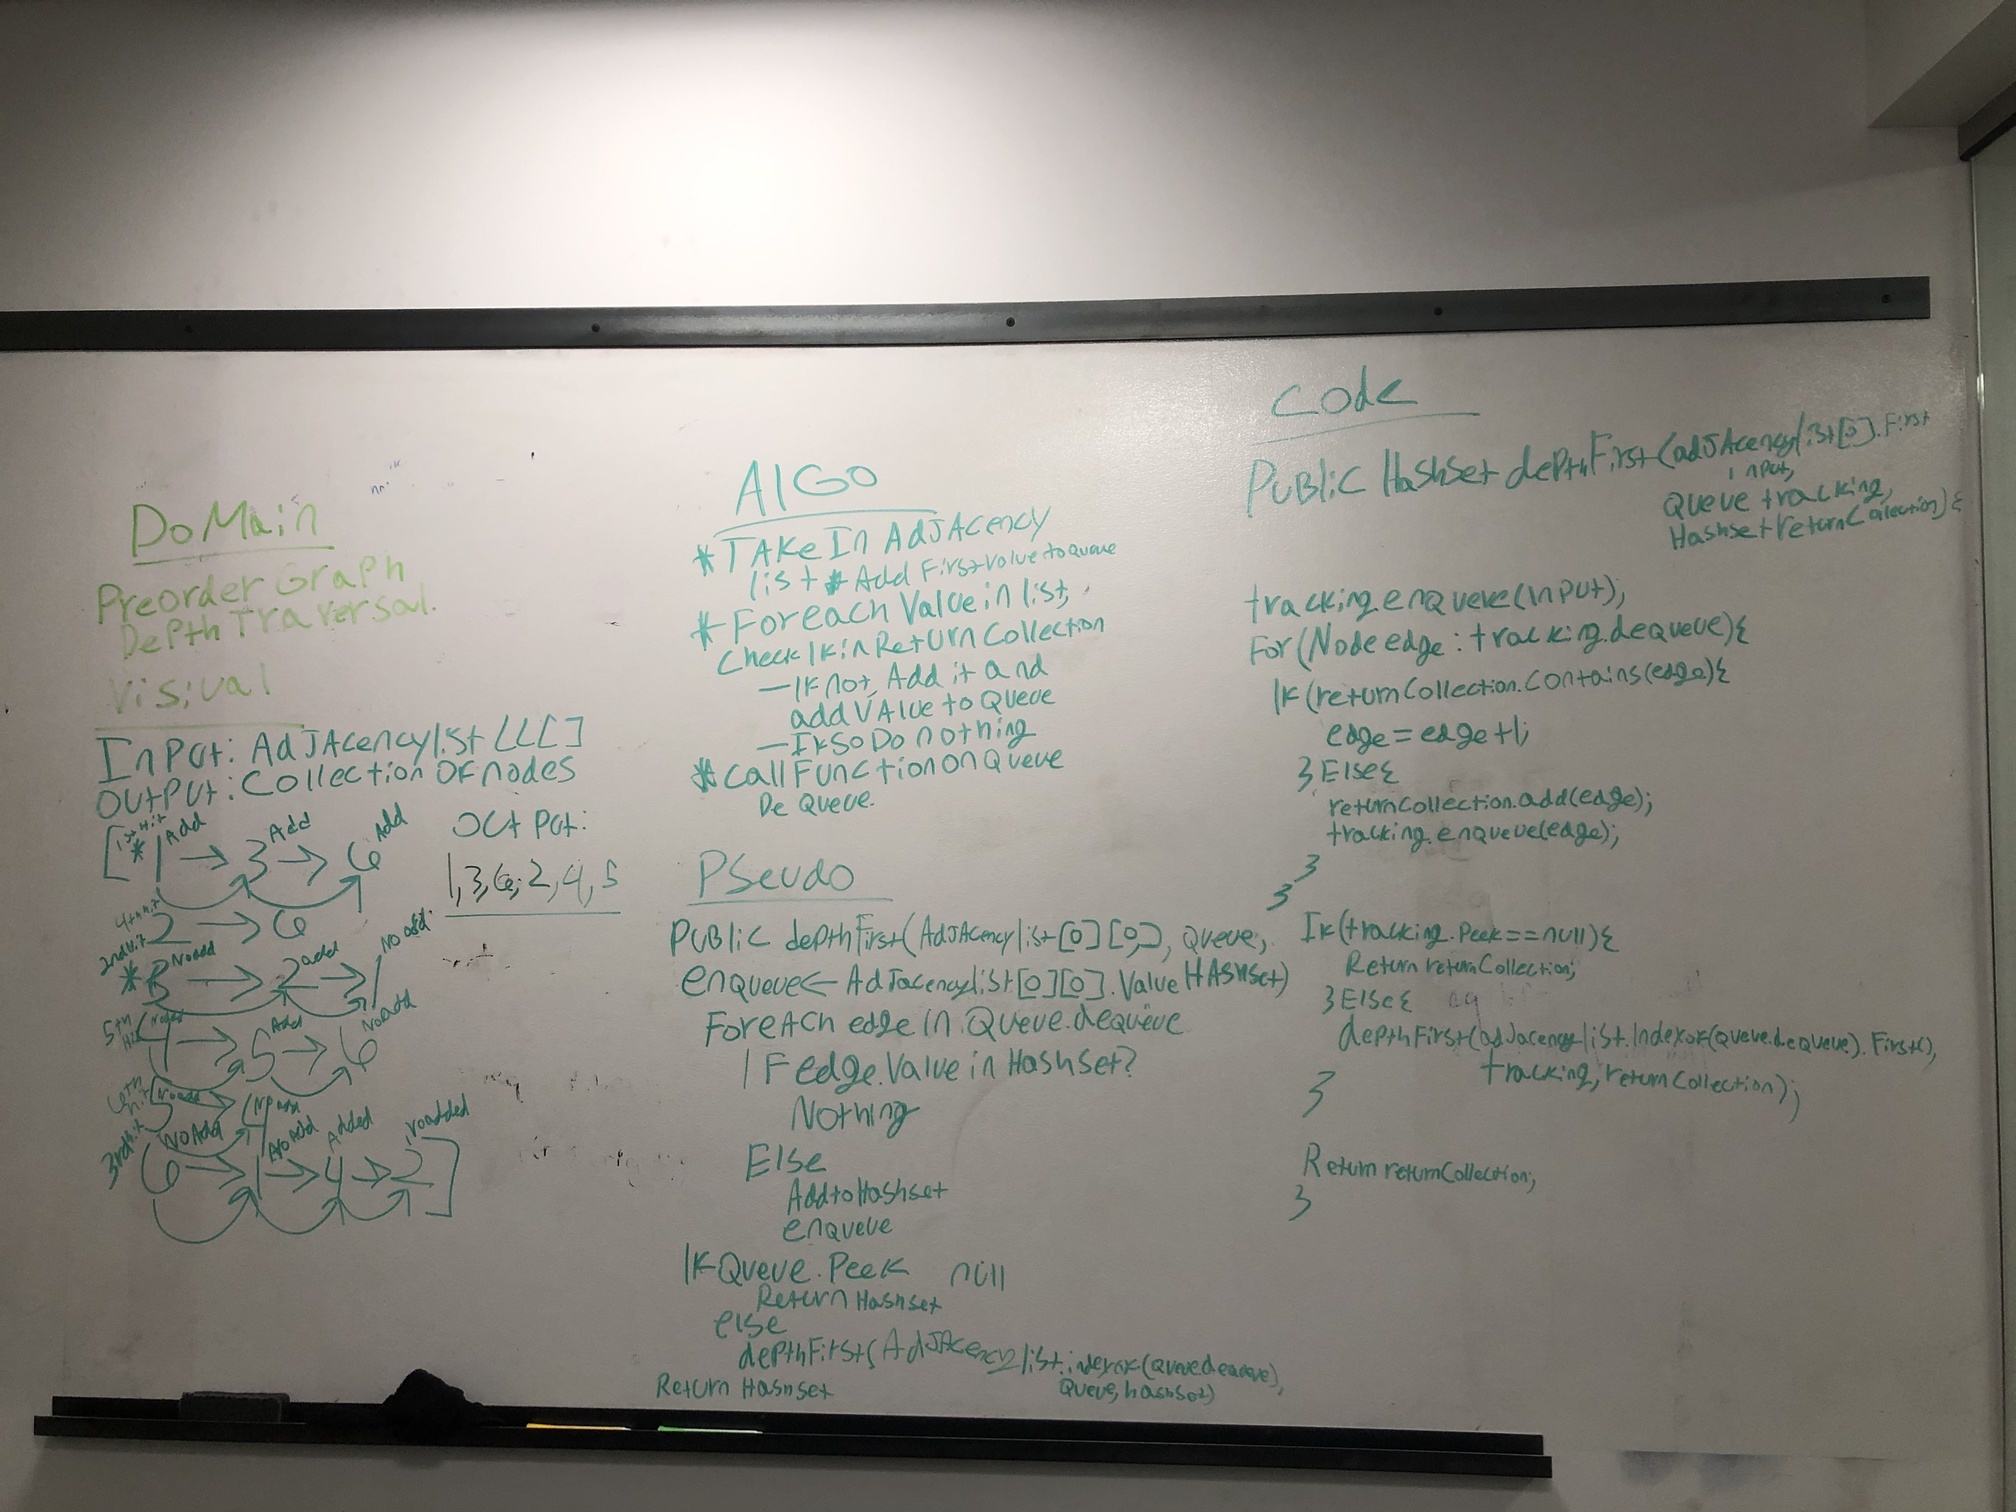 DoMain
Preorder Graph
Depth Traversal.
Visual
InPut: AdJAcencylist LLL]
OutPut: Collection OF nodes
[ 1st Hit * 1 Add → 3 Add → 6 Add
4th hit 2 → 6
2nd hit * 3 No add → 2 add → 1 No add
5th Hit 4 No add → 5 Add → 6 No add
6th hit 5 No add → 4 No add
3rd hit 6 No Add → 1 No Add → 4 Added → 2 no added ]
OutPut:
1,3,6,2,4,5
AlGo
* TAke In AdJAcency
list * Add First value to queue
* Foreach Value in list,
Check IF in Return Collection
- IF not, Add it and
add VAlue to Queue
- IF so Do nothing
* Call Function on Queue
De Queue.
PSeudo
PUBLiC depthFirst(AdJAcencylist[0][0,], Queue,
enqueue <- AdJacencylist[0][0].Value HAshset)
ForeAch edge in Queue.dequeue
IF edge.Value in Hashset?
Nothing
Else
Add to Hashset
enqueue
IF Queue.Peek null
Return Hashset
else
depthFirst(AdJAcencylist.indexof(Queuedequeue),
Queue, hashset)
Return Hashset
Code
PUBLiC Hashset depthFirst(adJAcencylist[0].First
inPut,
Queue tracking,
Hashset returnCollection){
tracking.enqueue(inPut);
For(Node edge : tracking.dequeue){
IF(returnCollection.Contains(edge){
edge = edge+1;
}Else{
returnCollection.add(edge);
tracking.enqueue(edge);
}
}
IF(tracking.Peek == null){
Return returnCollection;
}Else{
depthFirst(adjacencylist.Indexof(Queue.dequeue).First(),
tracking, returnCollection);
}
Return returnCollection;
}